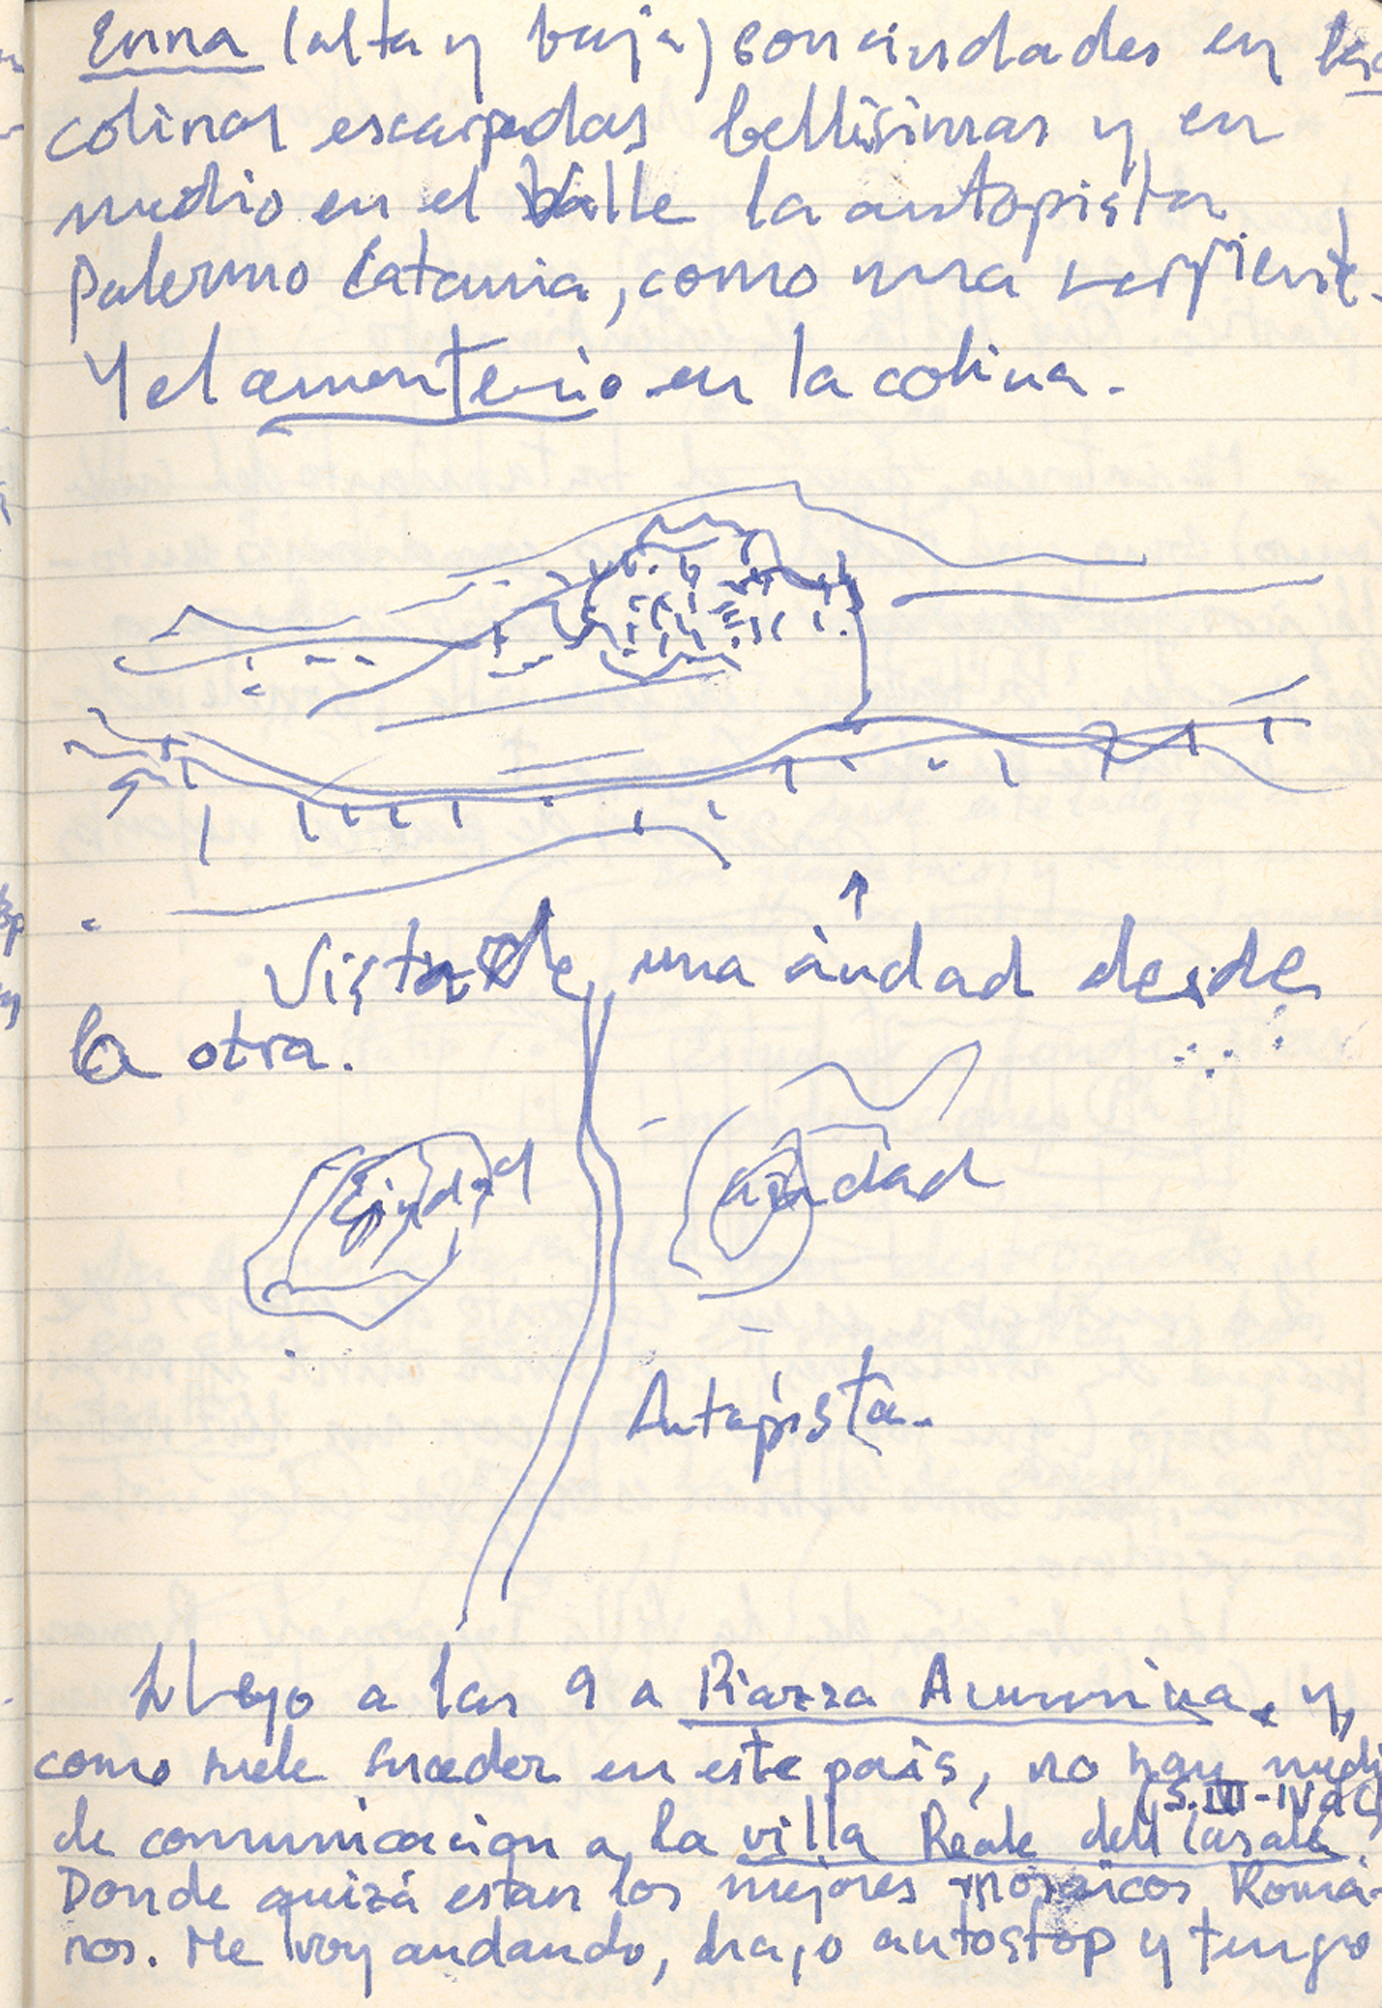 Enna (alta y baja) son ciudades en las
colinas escarpadas bellísimas y en
medio en el valle la autopista
Palermo Catania, como una serpiente.
Y el cementerio en la colina.
Vista de una ciudad desde
la otra.
Ciudad
ciudad
Autopista.
Llego a las 9 a Piazza Armerina, y,
como suele suceder en este país, no hay medi
(S. III-IV d C)
de comunicacion a la villa Reale dell Casale.
Donde quizá estan los mejores mosaicos Roma-
nos. Me voy andando, hago autostop y tengo